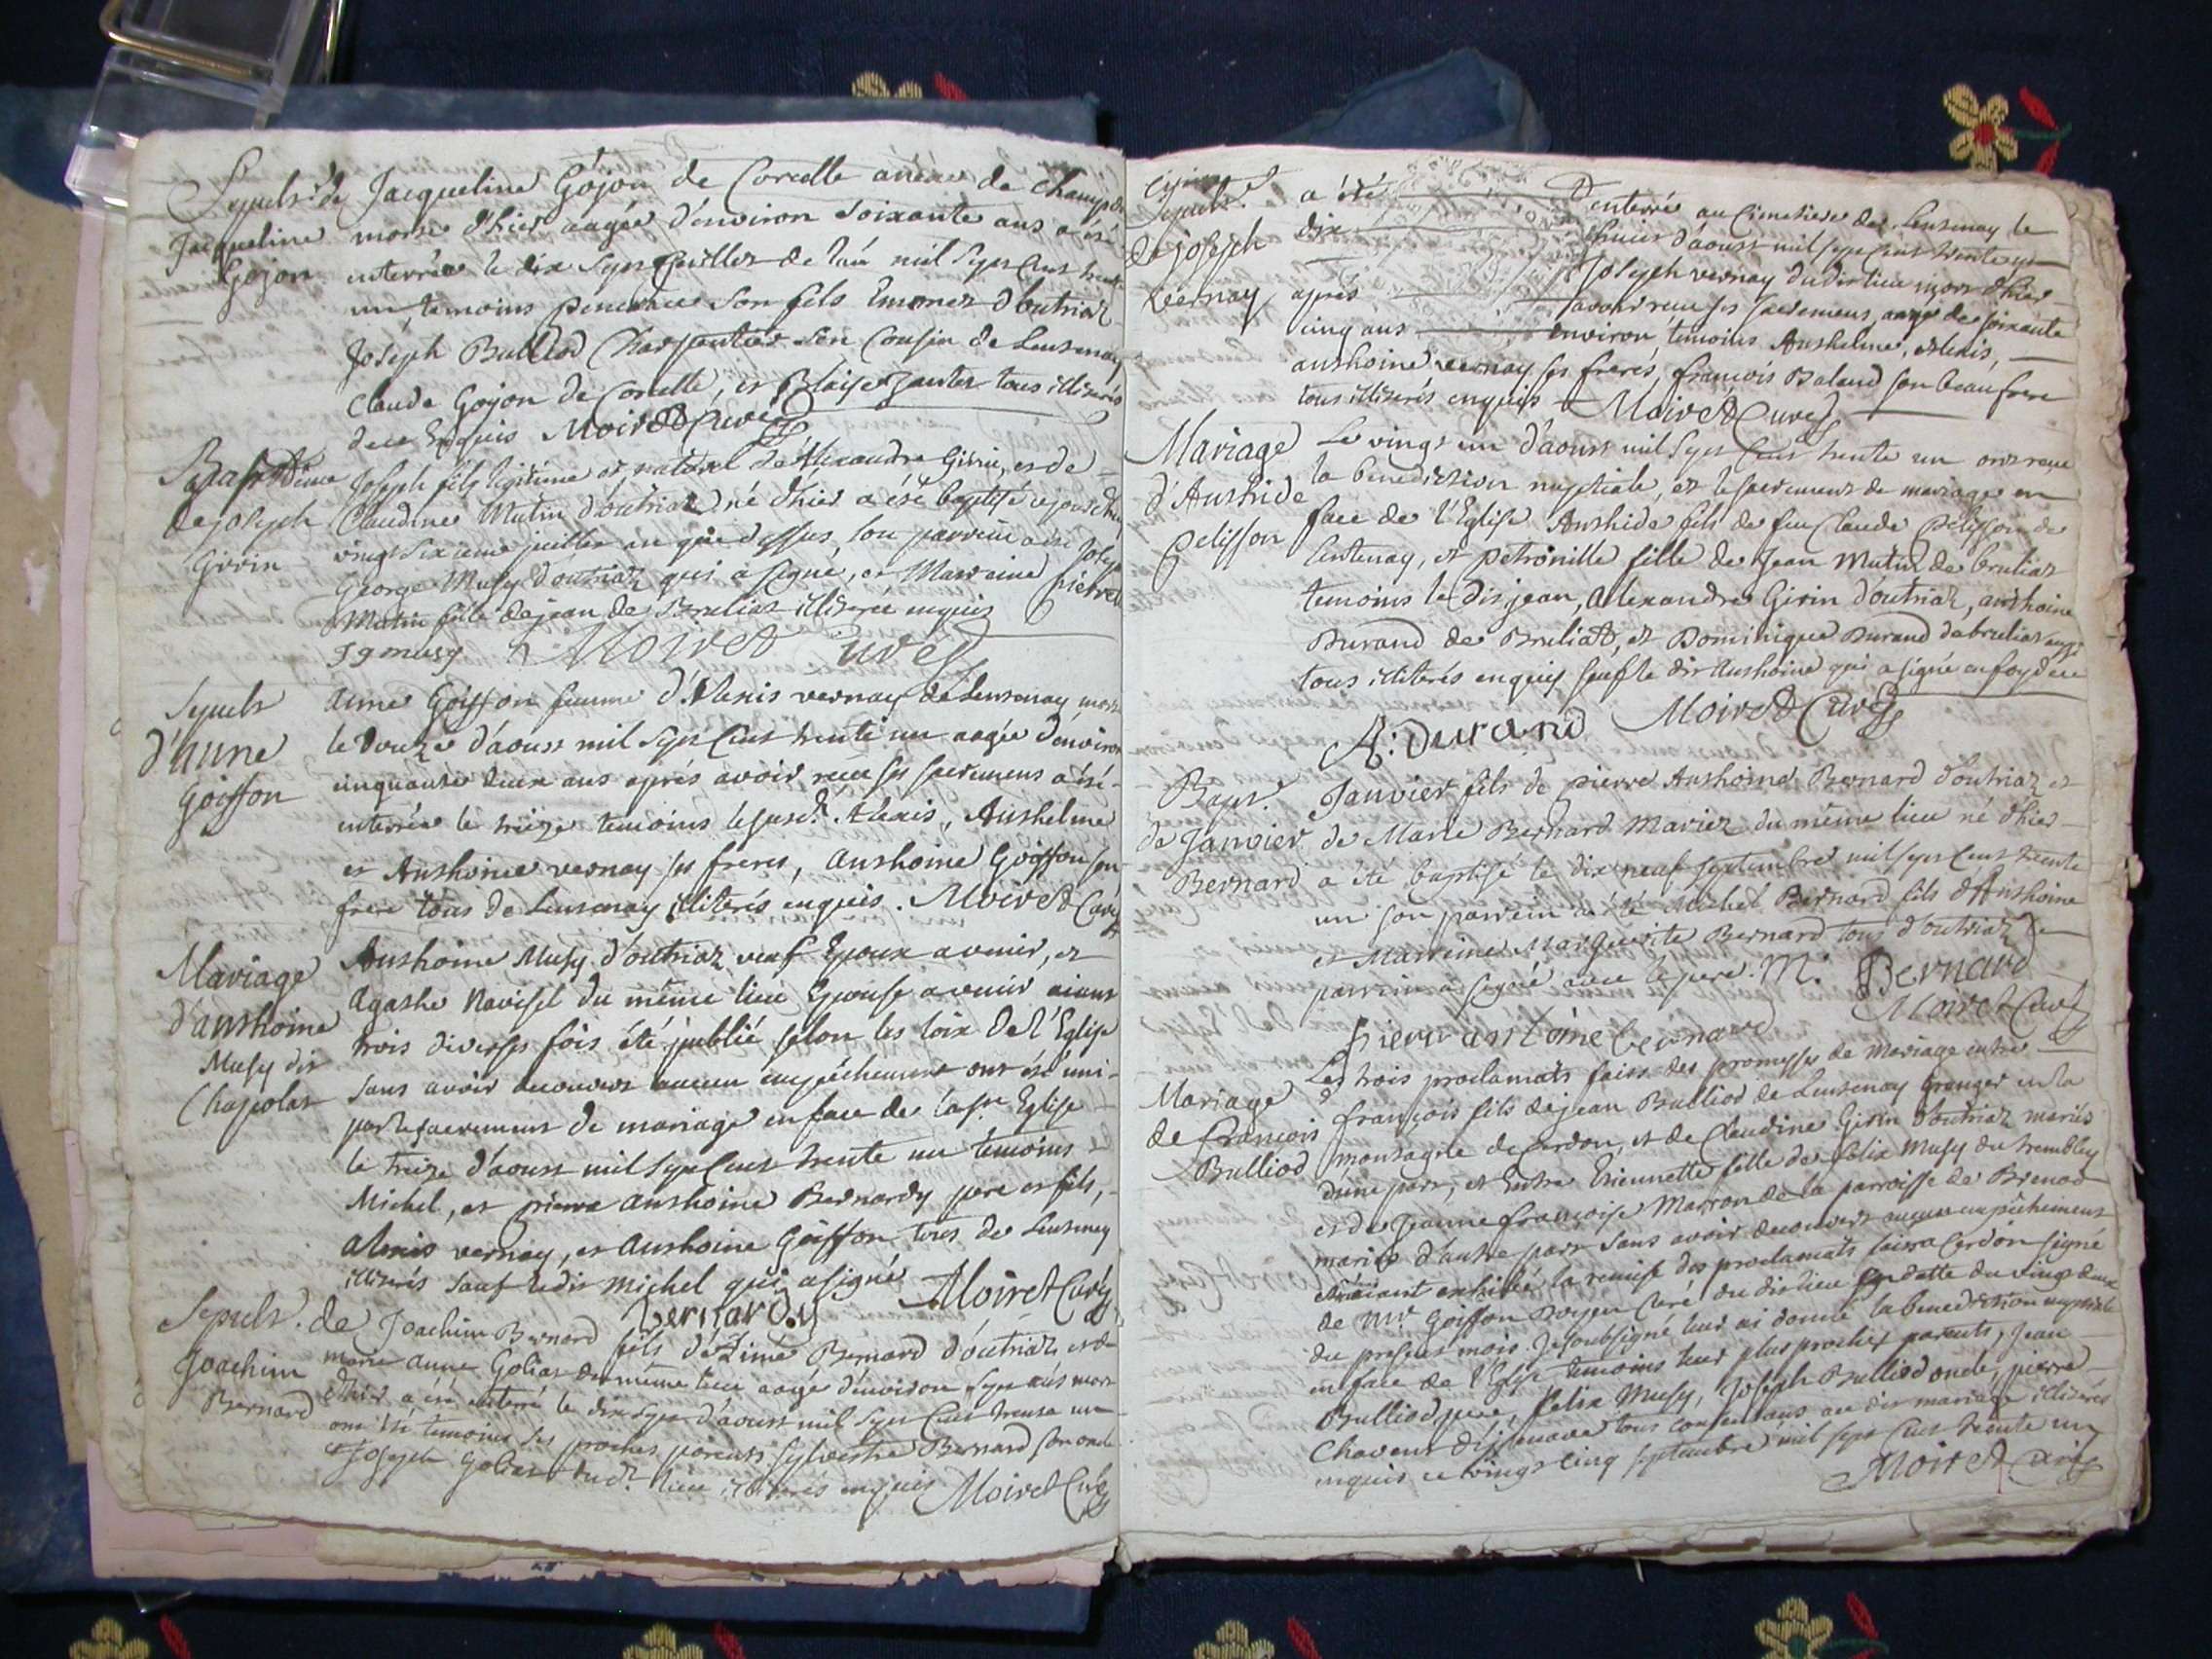 Sepult.re de
Jacqueline
Gojon
Jacqueline Gojon de Corcelle
morte d'hier aagée d'environ soixante ans a été
enterrée le dix sept juillet de l'an mil sept cens trente
un, temoins son fils d'outriaz
Joseph Bulliod Charpentier son Cousin de Lentenay
Claude Gojon de Corcelle, et Blaise tous illiterés
de ce Enquis Moiret Curé
Baptême
de joseph
Girin
Joseph fils legitime et naturel de Alexandre Girin, et de
Claudine Mutin d'outriaz né d'hier a été baptisé
vingt sixieme juillet an que dessus, son parrein a été Joseph
George Musy d'outriaz qui a signé, et Marreine pierrette
Mutin fille de jean de Brulliat illiterée enquise
J g musy Moiret Curé
Sepult
d'anne
Goiffon
anne Goiffon femme d'Alexis vernay de Lentenay morte
le douze d'aoust mil sept cens trente un aagée d'environ
cinquante deux ans aprés avoir receu ses sacremens a été
enterrée le treize temoins le susd.t Alexis, Anthelme
et Anthoine vernay ses freres, anthoine Goiffon son
frere tous de Lentenay illiterés enquis. Moiret Curé
Mariage
d'anthoine
Musy dit
Chapolat
Anthoine Musy d'outriaz veuf Epoux a venir, et
Agathe Ravisel du même lieu Epouse a venir aiant
trois diverses fois été publié selon les loix de l'Eglise
sans avoir decouvert aucun empéchement ont été uni
par le sacrement de mariage en face de la s.te Eglise
le treize d'aoust mil sept cens trente un temoins
Michel, et pierre anthoine Bernardy pere et fils,
alexis vernay, et anthoine Goiffon tous de Lentenay
illiterés sauf ledit michel qui a signé Moiret Curé
bernardy
Sepult. de
Joachim
Bernard
Joachim Bernard fils d'Aimé Bernard d'outriaz et de
marie anne Goliat du même lieu aagé d'environ sept ans mort
d'hier a été enterré le dix sept d'aoust mil sept cens trente un
ont été temoins ses proches parents sylvestre Bernard son oncle
Joseph Goliat dud.t lieu illiterés enquis Moiret Curé
Sepult.
de joseph
vernay
a été enterré au Cimetiere de Lentenay le
dix huict d'aoust mil sept cens trente un
Joseph vernay dudit lieu mort d'hier
aprés avoir receu ses sacremens, aagé de soixante
cinq ans environ, temoins Anthelme, alexis,
anthoine vernay ses freres, francois Baland son beau frere
tous illiterés enquis Moiret Curé
Mariage
d'Anthide
pelisson
Le vingt un d'aoust mil sept cens trente un ont receu
la benediction nuptiale, et le sacrement de mariage en
face de l'Eglise Anthide fils de feu Claude pelisson de
Lentenay, et petronille fille de Jean Mutin de bruliat
temoins ledit jean, alexandre Girin d'outriaz, anthoine
Durand de Bruliat, et Dominique Durand de bruliat
tous illiterés enquis sauf le dit Anthoine qui a signé en foy de ce
A: durand Moiret Curé
Bapt.
de Janvier
Bernard
Janvier fils de pierre Anthoine Bernard d'outriaz et
de Marie Bernard Mariez du même lieu né d'hier
a été baptisé le dix neuf septembre mil sept cens trente
un son parrein a été Michel Bernard fils d'Anthoine
et Marreine Marguerite Bernard tous d'outriaz le
parrein a signé avec le pere. M. Bernard
Moiret Curé
pierre antoine bernard
Mariage
de francois
Bulliod
Les trois proclamats faits des promesses de mariage entre
françois fils de jean Bulliod de Lentenay Granger en la
montagne de Cerdon, et de Claudine Girin d'outriaz mariés
d'une part, et Entre Etiennette fille de felix Musy du trembley
et de Jeanne françoise Marron de la parroisse de Brenod
mariés d'autre part sans avoir decouvert aucun empêchement
m'aiant exhibé la remise des proclamats faits a Cerdon signé
de Mr. Goiffon Curé du dit lieu en datte du vingt deux
du present mois. Je soubsigné leur ai donné la benediction nuptiale
en face de l'Eglise temoins leur plus proches parents, Jean
Bulliod pere, felix Musy, Joseph Bulliod oncle, pierre
Chavent tous consentans au dit mariage illiterés
enquis ce vingt cinq septembre mil sept cens trente un
Moiret Curé